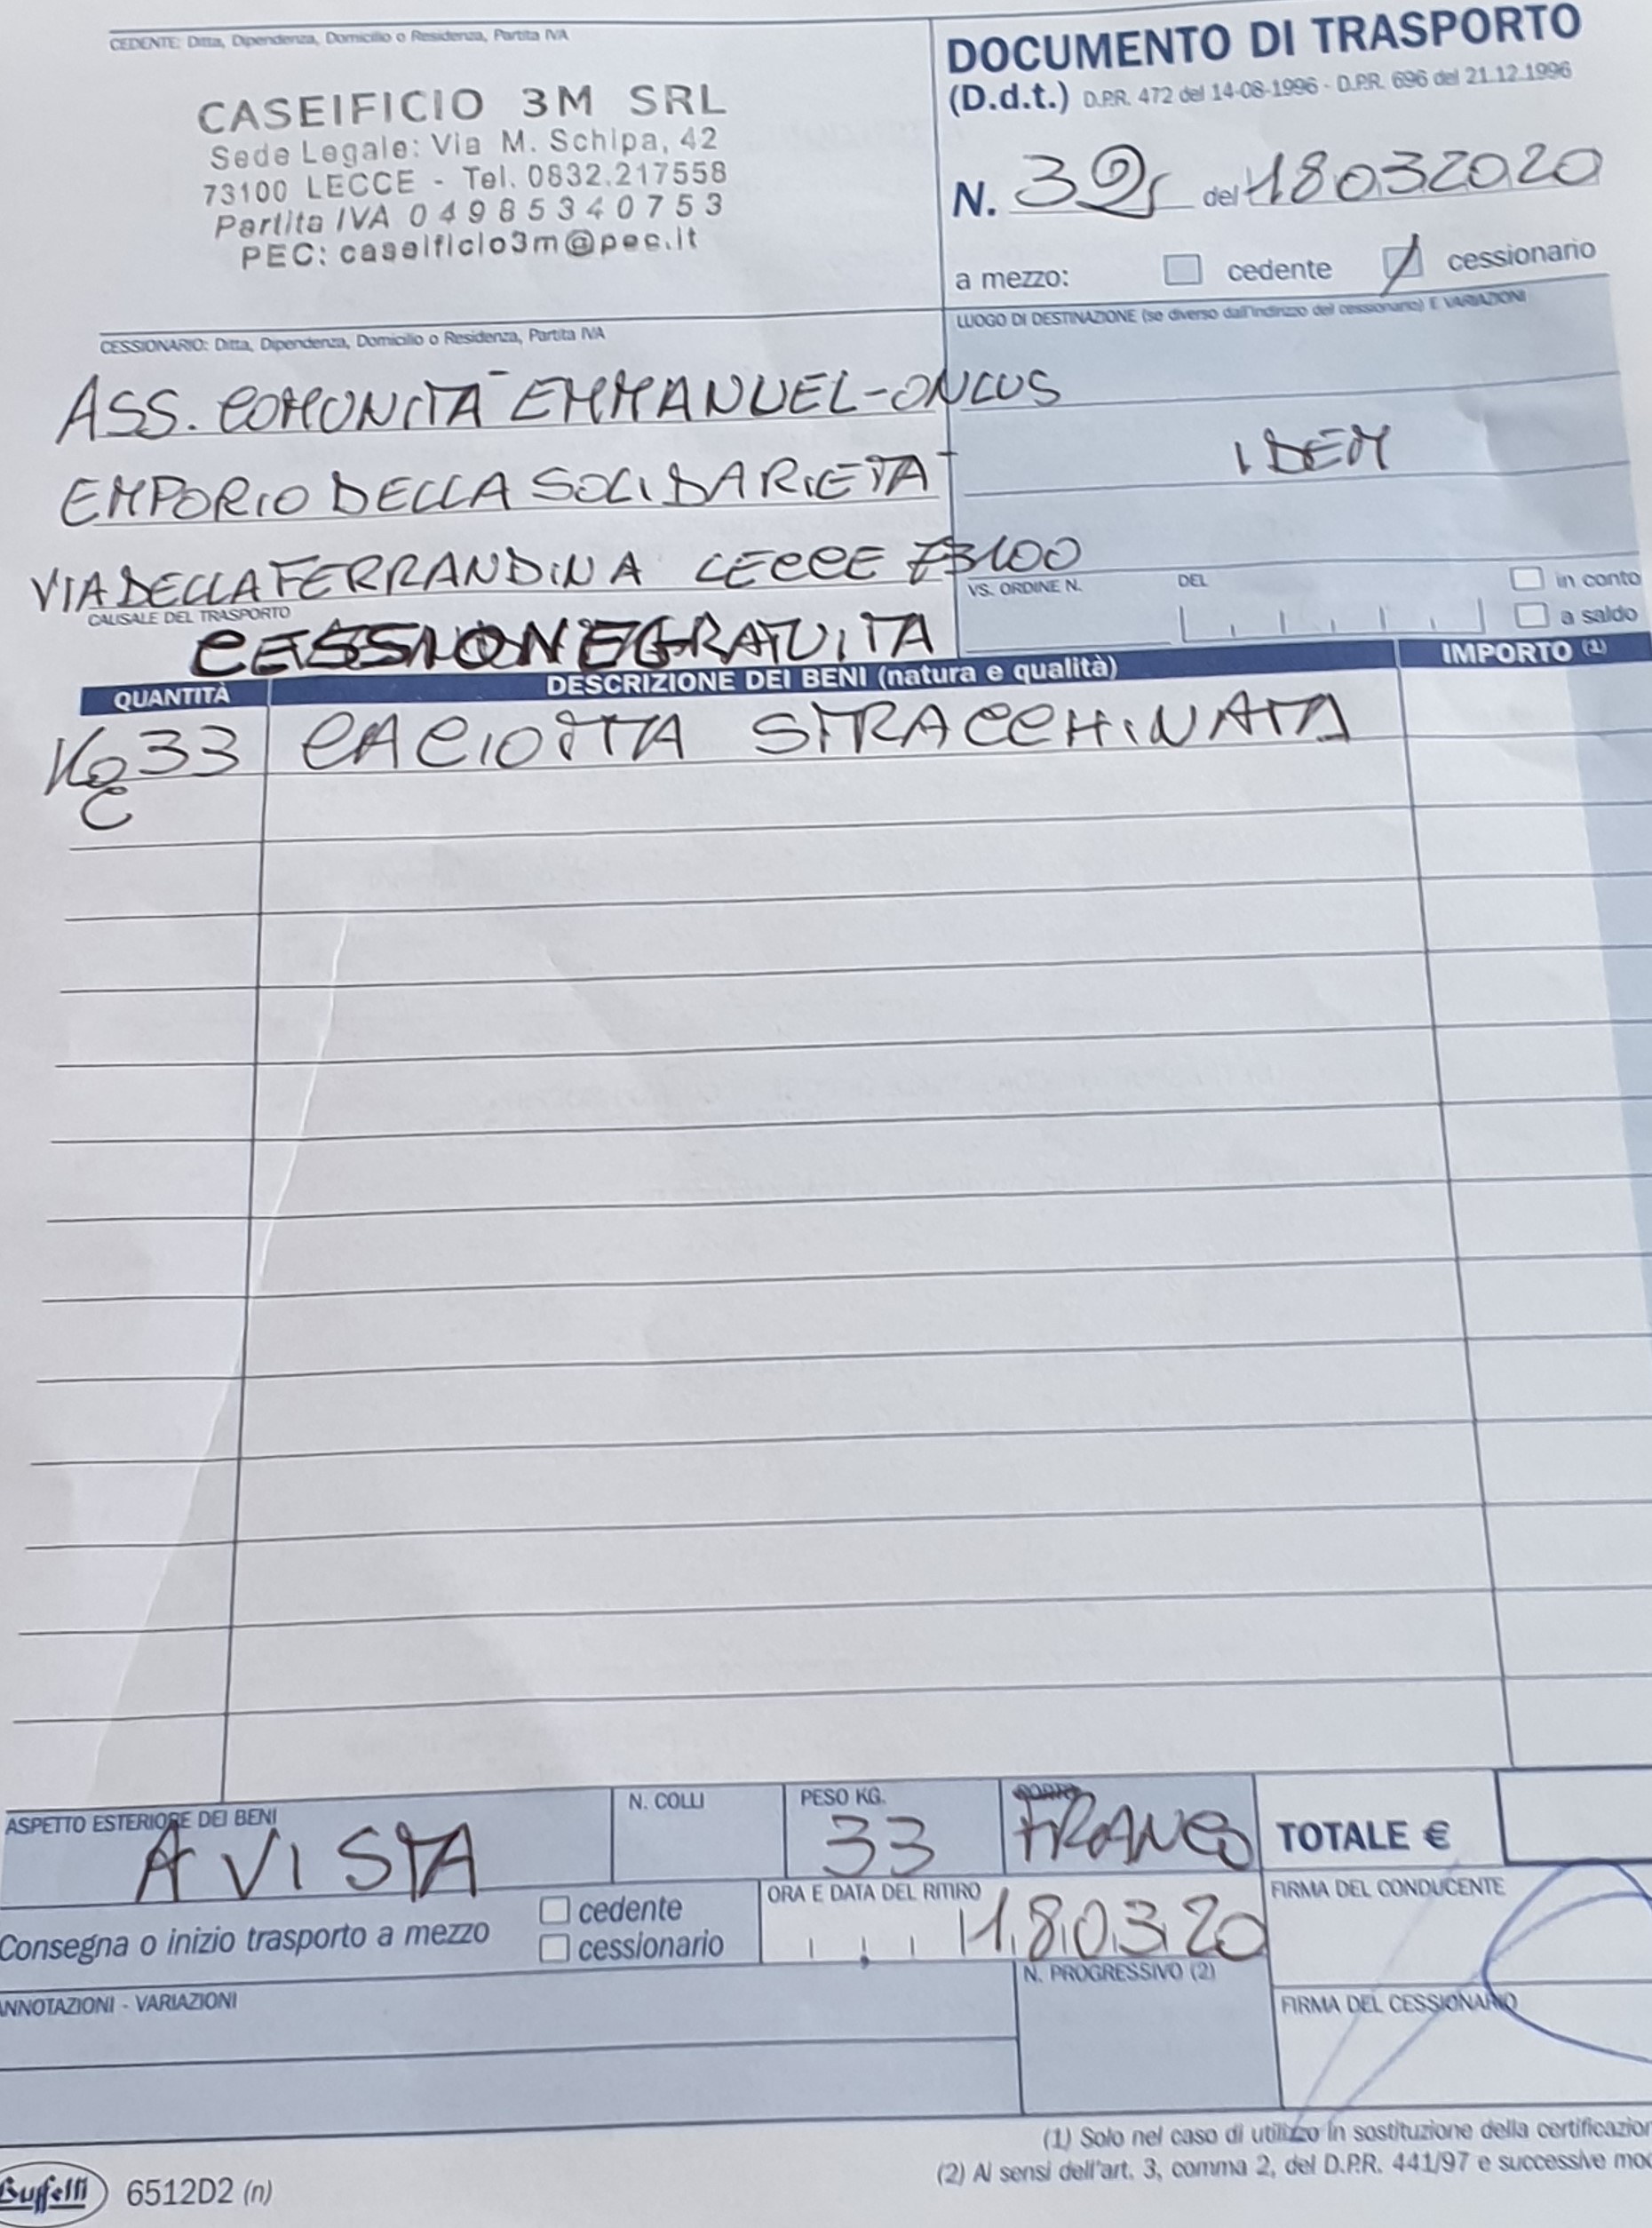 CEDENTE: Ditta, Dipendenza, Domicilio o Residenza, Partita IVA
CASEIFICIO 3M SRL
Sede Legale: Via M. Schipa, 42
73100 LECCE - Tel. 0832.217558
Partita IVA 04985340753
PEC: caseificio3m@pec.it
DOCUMENTO DI TRASPORTO
(D.d.t.) D.P.R. 472 del 14-08-1996 - D.P.R. 696 del 21.12.1996
N. del 18032020
a mezzo: cedente cessionario
CESSIONARIO: Ditta, Dipendenza, Domicilio o Residenza, Partita IVA
ASS. COMUNITA' EMMANUEL-ONLUS
EMPORIO DELLA SOLIDARIETA'
VIA DELLA FERRANDINA LECCE 73100
LUOGO DI DESTINAZIONE (se diverso dall'indirizzo del cessionario) E VARIAZIONI
IDEM
CAUSALE DEL TRASPORTO
CESSIONE GRATUITA
VS. ORDINE N. DEL in conto
a saldo
QUANTITÀ DESCRIZIONE DEI BENI (natura e qualità) IMPORTO (1)
Kg 33 CACIOTTA STRACCHINATA
ASPETTO ESTERIORE DEI BENI
A VISTA
N. COLLI
PESO KG.
33
PORTO
FRANCO
TOTALE €
Consegna o inizio trasporto a mezzo cedente
cessionario
ORA E DATA DEL RITIRO
180320
FIRMA DEL CONDUCENTE
ANNOTAZIONI - VARIAZIONI
N. PROGRESSIVO (2)
FIRMA DEL CESSIONARIO
(1) Solo nel caso di utilizzo in sostituzione della certificazion
(2) Ai sensi dell'art. 3, comma 2, del D.P.R. 441/97 e successive mod
Buffetti 6512D2 (n)